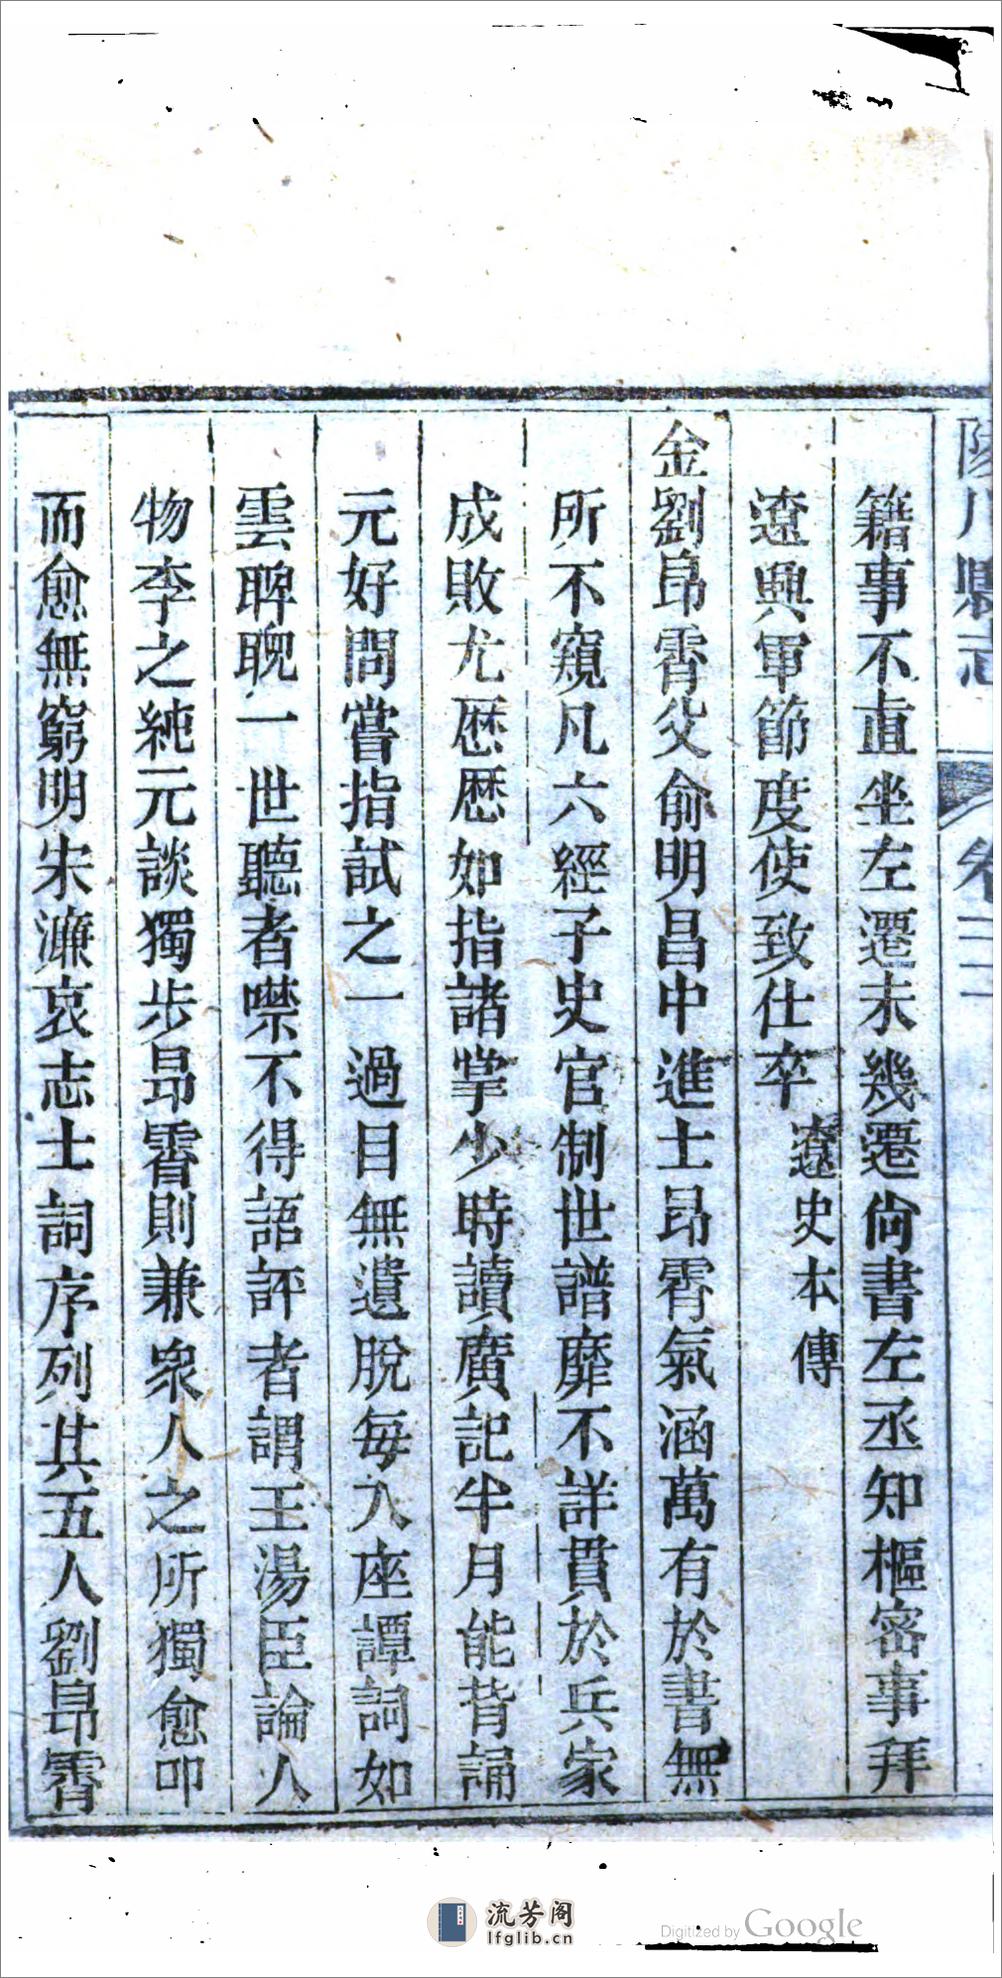 陵川縣志 卷二
籍事不直坐左遷未幾遷尙書左丞知樞密事拜
遼興軍節度使致仕卒 遼史本傳
金劉昻霄父俞明昌中進士昻霄氣涵萬有於書無
所不窺凡六經子史官制世譜靡不詳貫於兵家
成敗尤歴歴如指諸掌少時讀廣記半月能背誦
元好問嘗指試之一過目無遺脫每入座譚詞如
雲睥睨一世聽者噤不得語評者謂王湯臣論人
物李之純元談獨步昻霄則兼衆人之所獨愈叩
而愈無窮明宋濂哀志士詞序列其五人劉昻霄
流芳阁
lfglib.cn
Digitized by Google